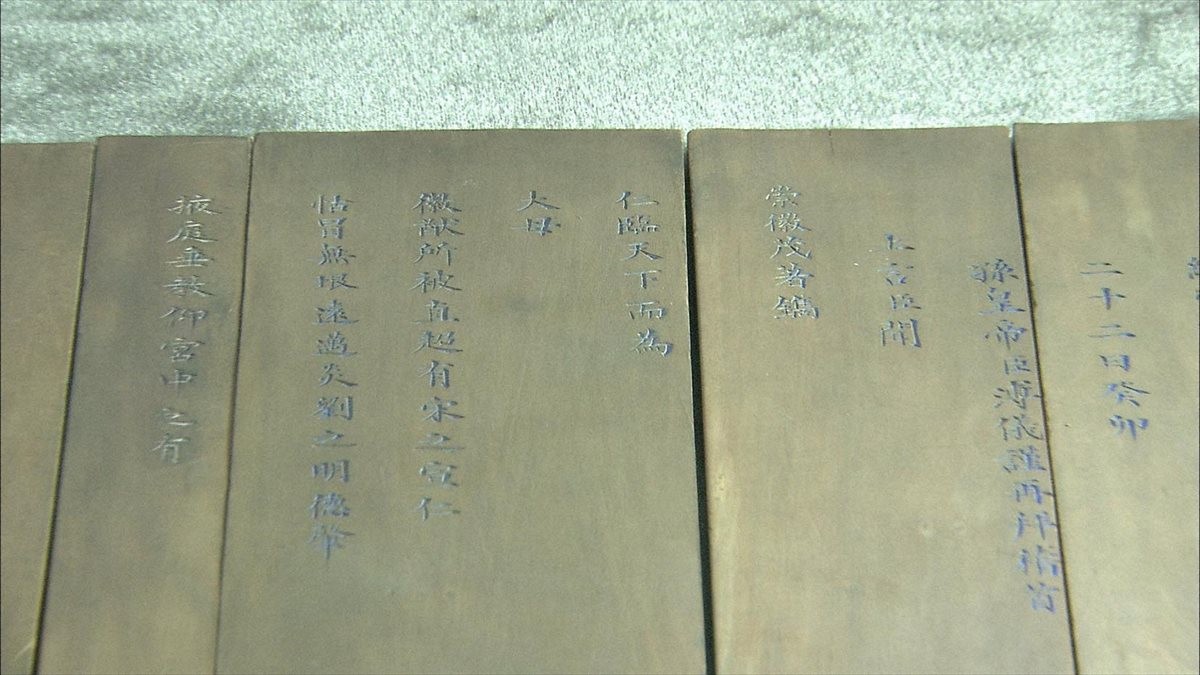 二十二日癸卯
孫皇帝臣溥儀謹再拜稽首
上言臣聞
崇徽茂著鏞
仁臨天下而為
大母
徽猷所被直超有宋之宣仁
怙冒無垠遠邁炎劉之明德
掖庭垂教仰宮中之有